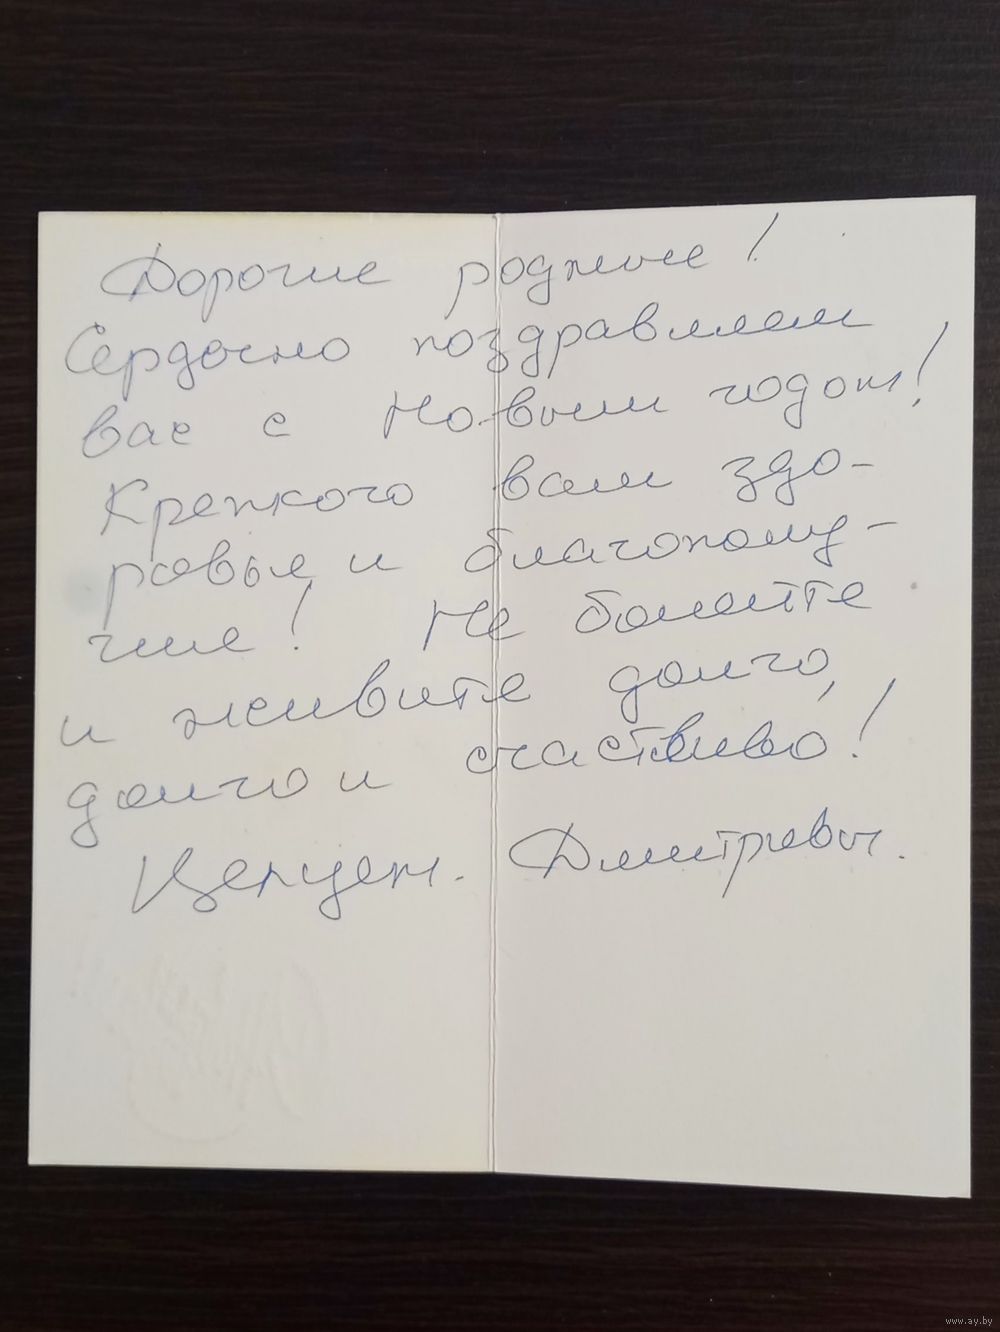 Дорогие родные!
Сердечно поздравляем
вас с Новым годом!
Крепкого вам здо-
ровья и благополу-
чие! Не болейте
и живите долго,
долго и счастливо!
Целуем. Дмитревы.
www.ay.by